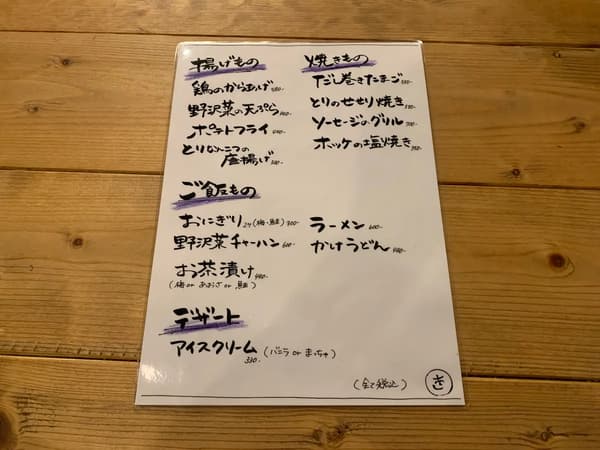 揚げもの
鶏のからあげ
野沢菜の天ぷら
ポテトフライ
とりなんこつの
唐揚げ
焼きもの
だし巻きたまご
とりのせせり焼き
ソーセージのグリル
ホッケの塩焼き
ご飯もの
おにぎり 2ケ (梅・鮭) 300-
野沢菜チャーハン 600-
お茶漬け
(梅 or あおさ or 鮭)
ラーメン 600-
かけうどん
デザート
アイスクリーム (バニラ or まっちゃ)
330-
(全て税込) き